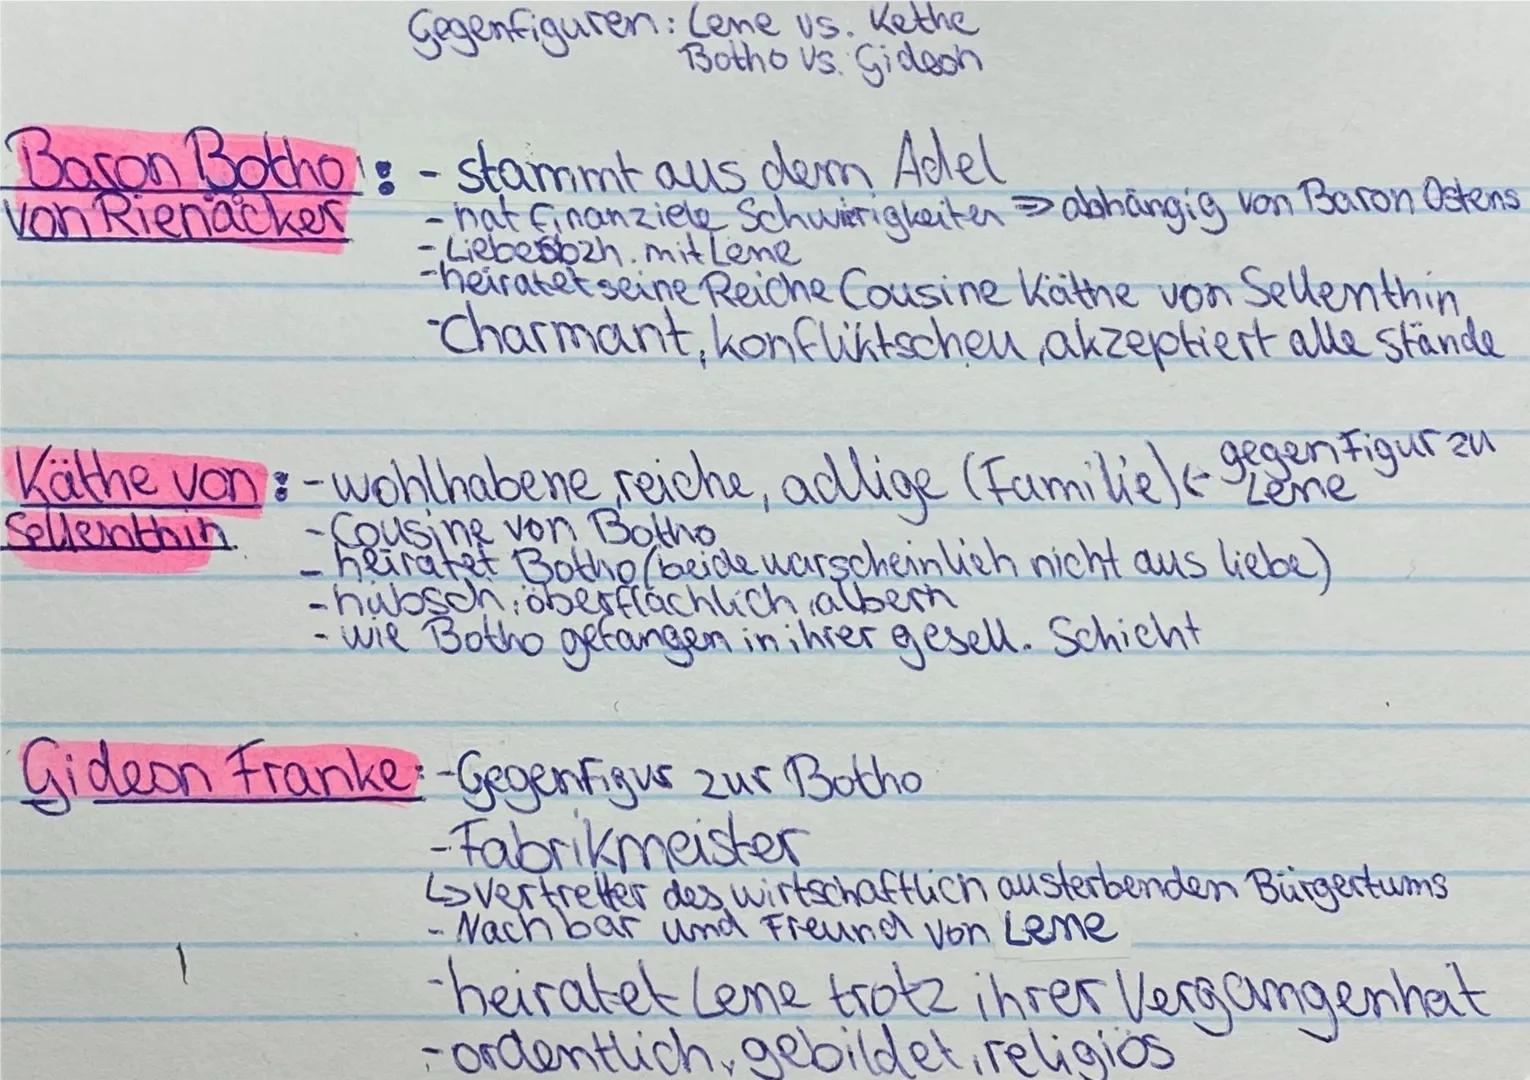 Gegenfiguren: Lene vs. Kethe
Botho vs. Gideon
Baron Botho: - stammt aus dem Adel
von Rienäcker - hat finanziele Schwierigkeiten => abhängig von Baron Ostens
- Liebesbzh. mit Lene
- heiratet seine Reiche Cousine Käthe von Sellenthin
- Charmant, konfliktscheu, akzeptiert alle stände
Käthe von: - wohlhabene, reiche, adlige (Familie) ← gegenfigur zu Lene
Sellenthin - Cousine von Botho
- heiratet Botho (beide warscheinlich nicht aus liebe)
- hübsch, oberflächlich, albern
- wie Botho gefangen in ihrer gesell. Schicht
Gideon Franke: - Gegenfigur zur Botho
- Fabrikmeister
↳ vertretter des wirtschaftlich austerbenden Bürgertums
- Nachbar und Freund von Lene
- heiratet Lene trotz ihrer Vergangenhat
- ordentlich, gebildet, religiös